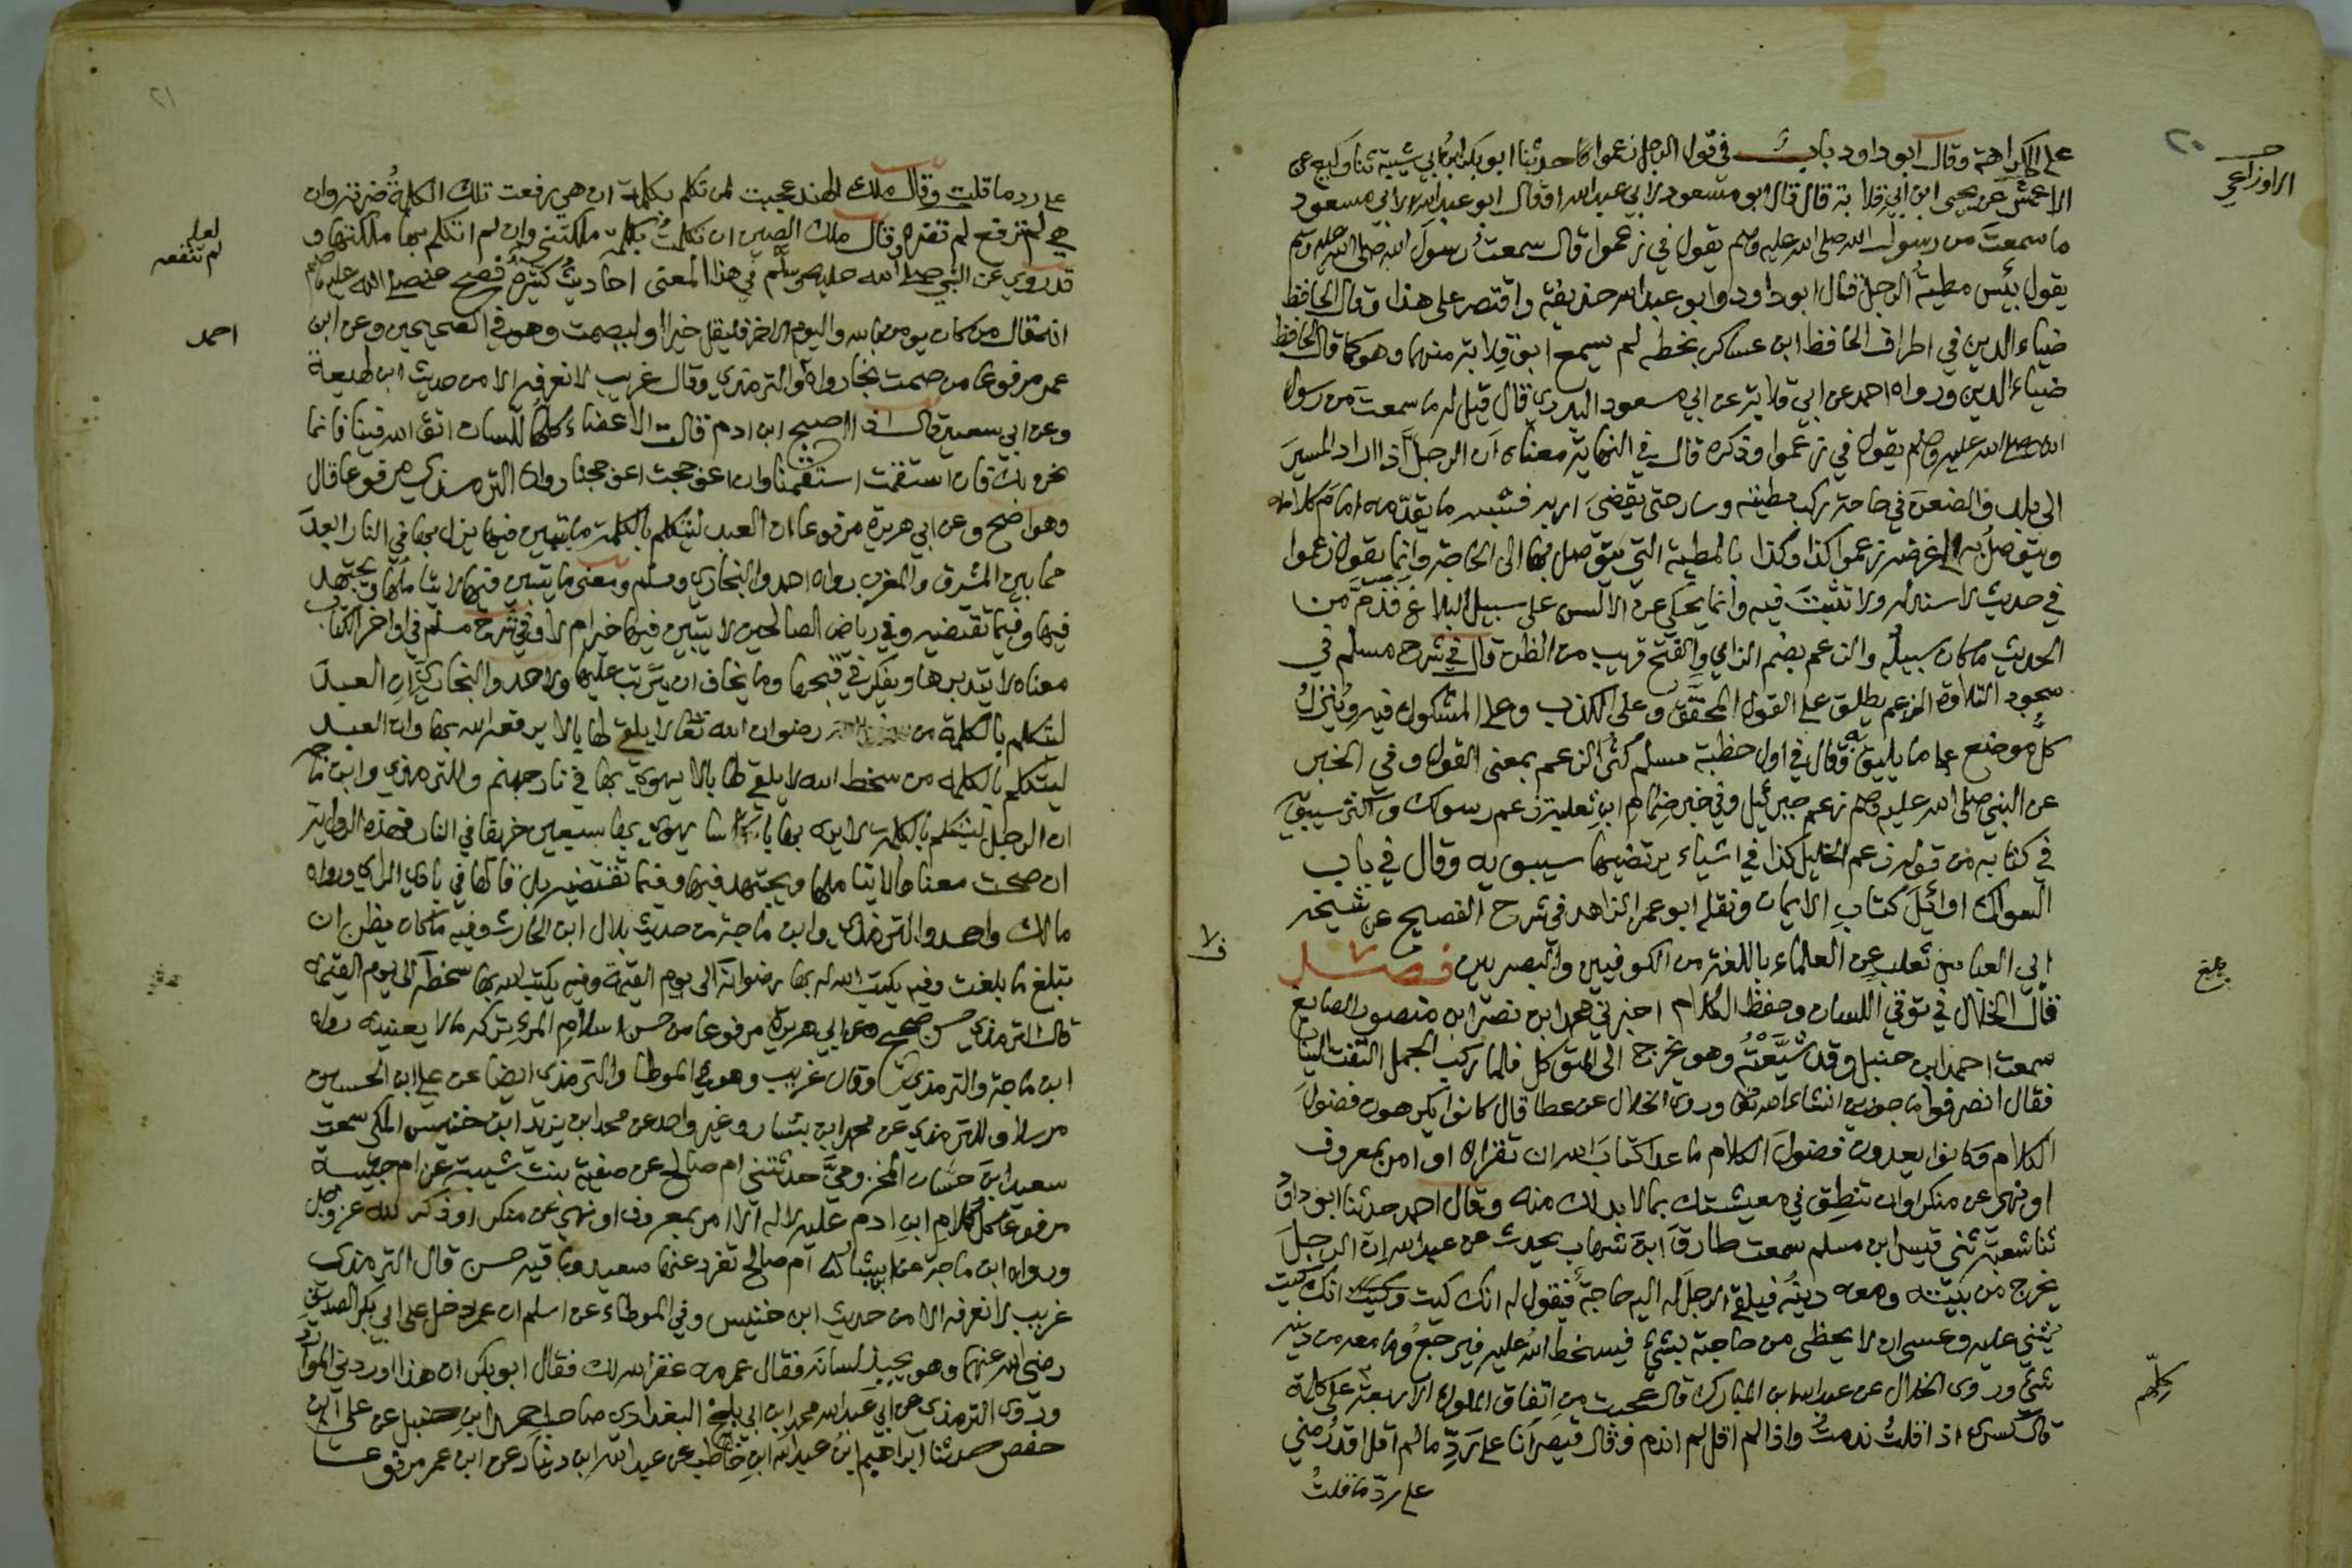 ٢٠
على الكراهة وقال ابو داود باب في قول الرجل زعموا حدثنا ابو بكر ابن ابي شيبة ثنا وكيع عن
الاوزاعي
الاعمش عن يحيى ابن ابي قلابة قال قال ابو مسعود لابي عبد الله او قال ابو عبد الله لابي مسعود
ما سمعت من رسول الله صلى الله عليه وسلم يقول في زعموا قال سمعت رسول الله صلى الله عليه وسلم
يقول بئس مطية الرجل قال ابو داود ابو عبد الله حذيفة واقتصر على هذا وقال الحافظ
ضياء الدين في اطراف الحافظ ابن عساكر بخطه لم يسمع ابو قلابة منهما وهو كما قال الحافظ
ضياء الدين ورواه احمد عن ابي قلابة عن ابي مسعود البدري قال قيل له ما سمعت من رسول
الله صلى الله عليه وسلم يقول في زعموا وذكره قال في النهاية معناه ان الرجل اذا اراد المسير
الى بلد والضعن في حاجة ركب مطيته وسار حتى يقضي اربه فشبه ما يقدمه امام كلامه
ويتوصل به الى غرضه زعموا كذا وكذا بالمطية التي يتوصل بها الى الحاجة وانما يقول زعموا
في حديث لا سند له ولا تثبت فيه وانما يحكي عن الالسن على سبيل البلاغ فذم من
الحديث ما كان سبيله والزعم بضم الزاي والفتح قريب من الظن قال في شرح مسلم في
سجود التلاوة الزعم يطلق على القول المحقق وعلى الكذب وعلى المشكوك فيه وينزل
كل موضع على ما يليق به وقال في اول خطبة مسلم كثر الزعم بمعنى القول وفي الخبر
عن النبي صلى الله عليه وسلم زعم جبرئيل وفي خبر ضمام ابن ثعلبة زعم رسولك واكثر سيبويه
في كتابه من قوله زعم الخليل كذا في اشياء يرتضيها سيبويه وقال في باب
السواك اوائل كتاب الايمان ونقله ابو عمر الزاهد في شرح الفصيح عن شيخه
ابي العباس ثعلب عن العلماء باللغة من الكوفيين والبصريين فصل
بلغ
قال الخلال في توقي اللسان وحفظ الكلام اخبرني محمد ابن نصر ابن منصور الصايغ
سمعت احمد ابن حنبل وقد شيعته وهو يخرج الى المتوكل فلما ركب الجمل التفت الينا
فقال انصرفوا ماجورين انشاء الله تعالى وروى الخلال عن عطا قال كانوا يكرهون فضول
الكلام وكانوا يعدون فضول الكلام ما عدا كتاب الله ان تقراه او امر بمعروف
او نهي عن منكر او ان تنطق في معيشتك بما لا بد لك منه وقال احمد حدثنا ابو داود
ثنا شعبة ثني قيس ابن مسلم سمعت طارق ابن شهاب يحدث عن عبد الله ان الرجل
يخرج من بيته ومعه دينه فيلقى الرجل له اليه حاجة فيقول له انك كيت وكيت انك كيت
يثني عليه وعسى ان لا يحظى من حاجته بشيء فيسخط الله عليه فيرجع وما معه من دينه
شيء وروى الخلال عن عبد الله ابن المبارك قال عجبت من اتفاق الملوك الاربعة على كلمة
كلهم
قال كسرى اذا قلت ندمت واذا لم اقل لم اندم وقال قيصر انا على رد ما لم اقل اقدر مني
على رد ما قلت
٢١
على رد ما قلت وقال ملك الهند عجبت لمن تكلم بكلمة ان هي رفعت تلك الكلمة ضرته وان
هي لم ترفع لم تضره وقال ملك الصين ان تكلمت بكلمة ملكتني وان لم اتكلم بها ملكتها و
لعله
لم تنفعه
قد روي عن النبي صلى الله عليه وسلم في هذا المعنى احاديث كثيرة فصح عنه صلى الله عليه وسلم
انه قال من كان يومن بالله واليوم الاخر فليقل خيرا او ليصمت وهو في الصحيحين وعن ابن
احمد
عمر مرفوعا من صمت نجا رواه والترمذي وقال غريب لا نعرفه الا من حديث ابن لهيعة
وعن ابي سعيد قال اذا اصبح ابن ادم قالت الاعضاء كلها للسان اتق الله فينا فانما
نحن بك فان استقمت استقمنا وان اعوججت اعوججنا رواه الترمذي مرفوعا قال
وهو اصح وعن ابي هريرة مرفوعا ان العبد ليتكلم بالكلمة ما يتبين فيها يزل بها في النار ابعد
مما بين المشرق والمغرب رواه احمد والبخاري ومسلم ومعنى ما يتبين فيها لا يتاملها ويجتهد
فيها وفيما تقتضيه وفي رياض الصالحين لا يتبين فيها خير ام لا وفي شرح مسلم في اواخر الكتاب
معناه لا يتدبرها ويفكر في قبحها وما يخاف ان يترتب عليها ولاحمد والبخاري ان العبد
ليتكلم بالكلمة من رضوان الله تعالى لا يلقي لها بالا يرفعه الله بها وان العبد
ليتكلم بالكلمة من سخط الله لا يلقي لها بالا يهوي بها في نار جهنم وللترمذي وابن ماجه
ان الرجل ليتكلم بالكلمة لا يرى بها باسا يهوي بها سبعين خريفا في النار وهذه الرواية
ان صحت معناها لا يتاملها ويجتهد فيها وفيما تقتضيه بل قالها في بادي الراي ورواه
مالك واحمد والترمذي وابن ماجة من حديث بلال ابن الحارث وفيه ما كان يظن ان
تبلغ ما بلغت وفيه يكتب الله له بها رضوانه الى يوم القيمة وفيه يكتب الله بها سخطه الى يوم القيمة
قال الترمذي حسن صحيح وعن ابي هريرة مرفوعا من حسن اسلام المرء تركه ما لا يعنيه رواه
ابن ماجة والترمذي وقال غريب وهو في الموطا والترمذي ايضا عن علي ابن الحسين
مرسلا وللترمذي عن محمد ابن بشار وغير واحد عن محمد ابن يزيد ابن خنيس المكي سمعت
سعيد ابن حسان المخزومي حدثتني ام صالح عن صفية بنت شيبة عن ام حبيبة
مرفوعا كل كلام ابن ادم عليه لا له الا امر بمعروف او نهي عن منكر او ذكر الله عز وجل
ورواه ابن ماجة عن ابن بشار ام صالح تفرد عنها سعيد وباقيه حسن قال الترمذي
غريب لا نعرفه الا من حديث ابن خنيس وفي الموطاء عن اسلم ان عمر دخل على ابي بكر الصديق
رضي الله عنهما وهو يجبذ لسانه فقال عمر مه غفر الله لك فقال ابو بكر ان هذا اوردني الموارد
وروى الترمذي عن ابي عبد الله محمد ابن ابي ثلج البغدادي صاحب احمد ابن حنبل عن علي ابن
حفص حدثنا ابراهيم ابن عبد الله ابن حاطب عن عبد الله ابن دينار عن ابن عمر مرفوعا